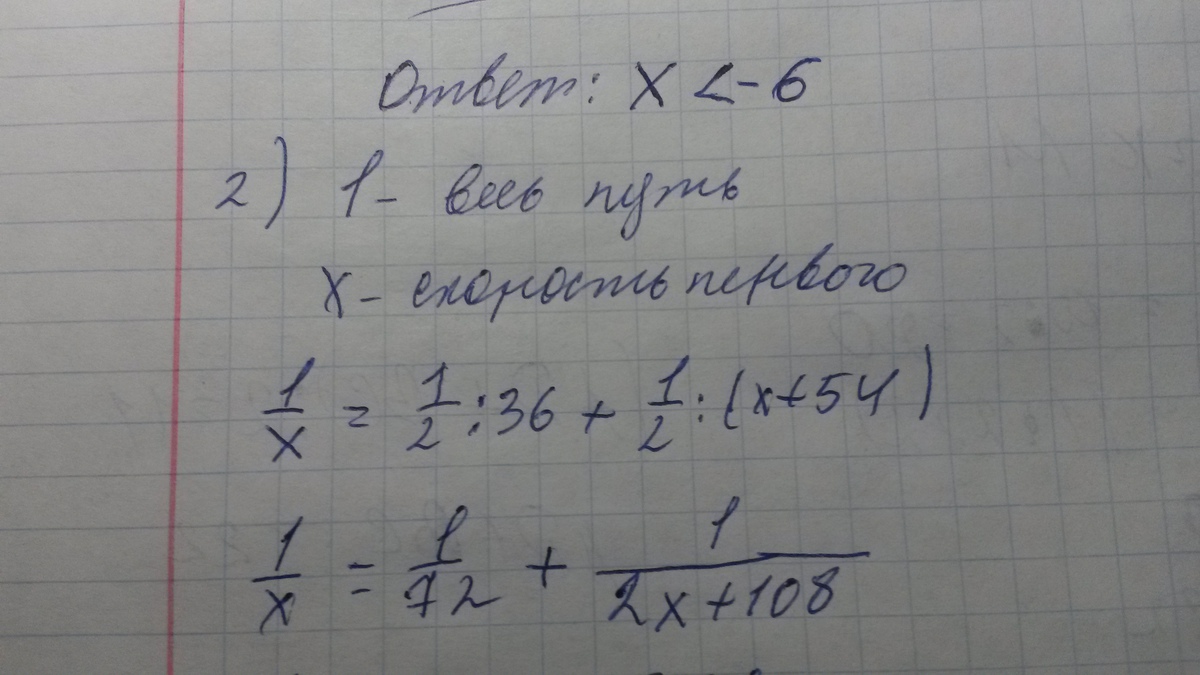 Ответ: x < -6
2) 1 - весь путь
x - скорость первого
1/x = 1/2 : 36 + 1/2 : (x+54)
1/x = 1/72 + 1/(2x+108)